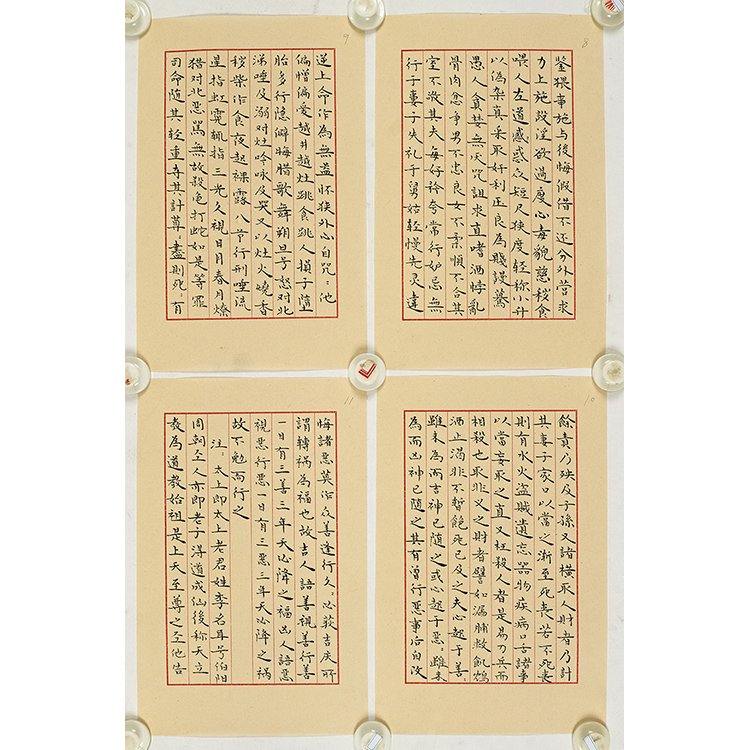 8
鉴猥事施与後悔假借不还分外营求
力上施設淫欲過度心毒貌慈秽食
喂人左道惑惑众短尺狭度轻称小升
以偽杂真采取奸利压良為賤謾驀
愚人貪婪無厌咒詛求直嗜洒悖亂
骨肉忿争男不忠良女不柔順不合其
室不敬其夫每好衿夸常行妒忌無
行于妻子失礼于舅姑轻慢先灵違
9
逆上命作為無益怀挟外心自咒〻他
偏憎偏爱越井越灶跳食跳人損子墮
胎多行隐僻晦腊歌舞朔旦号怒对北
涕唾及溺对灶吟咏及哭又以灶火燒香
秽柴作食夜起裸露八节行刑唾流
星指虹霓輒指三光久視日月春月燎
猎对北恶罵無故殺龟打蛇如是等罪
司命随其轻重夺其計尊〻盡則死〻有
10
餘責乃殃及子孫又諸横取人财者乃計
其妻子家口以當之渐至死丧若不死丧
則有水火盗賊遺忘器物疾病口舌諸事
以當妄取之直又枉殺人者是易刀兵而
相殺也取非义之财者譬如漏脯救飢鸩
洒止渴非不暂飽死已及之夫心起于善〻
雖未為而吉神已随之或心起于恶〻雖未
為而凶神已随之其有曾行恶事后自改
11
悔諸恶莫作众善逢行久〻必获吉庆所
謂轉禍為福也故吉人語善視善行善
一日有三善三年天必降之福凶人語恶
視恶行恶一日有三恶三年天必降之禍
故不勉而行之
注：太上即太上老君姓李名耳号伯阳
周朝圣人亦即老子得道成仙後称天立
教為道教始祖是上天至尊之圣他告